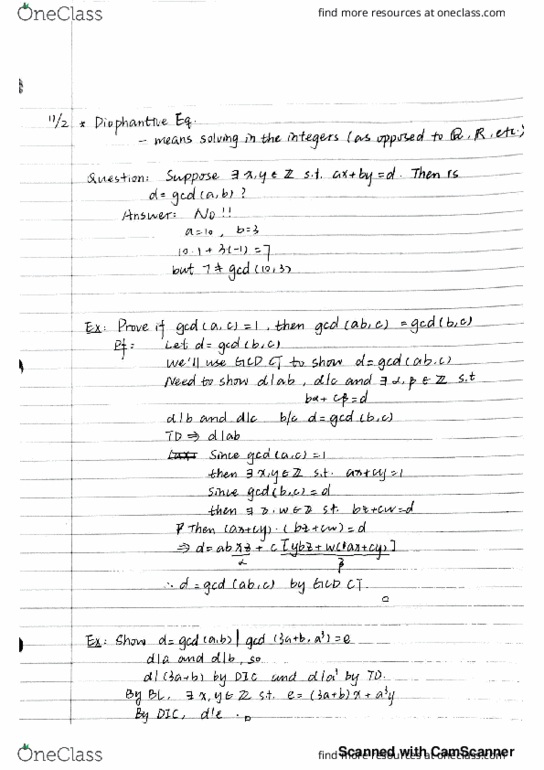 OneClass
find more resources at oneclass.com
11/2 * Diophantine Eq.
- means solving in the integers (as opposed to ℚ, ℝ, etc.)
Question: Suppose ∃ x,y ∈ ℤ s.t. ax+by=d. Then is
d=gcd(a,b)?
Answer: No!!
a=10, b=3
10·1+3(-1)=7
but 7≠gcd(10,3)
Ex: Prove if gcd(a,c)=1, then gcd(ab,c)=gcd(b,c)
Pf: Let d=gcd(b,c)
We'll use GCD CT to show d=gcd(ab,c)
Need to show d|ab, d|c and ∃ α,β ∈ ℤ s.t
bα+cβ=d
d|b and d|c b/c d=gcd(b,c)
TD ⇒ d|ab
Since gcd(a,c)=1
then ∃ x,y∈ℤ s.t. ax+cy=1
Since gcd(b,c)=d
then ∃ z,w∈ℤ st. bz+cw=d
Then (ax+cy)·(bz+cw)=d
⇒ d=abxz+c[ybz+w(ax+cy)]
α β
∴ d=gcd(ab,c) by GCD CT.
Ex: Show d=gcd(a,b) | gcd(3a+b, a³)=e
d|a and d|b, so
d|(3a+b) by DIC and d|a³ by TD.
By BL, ∃ x,y∈ℤ st. e=(3a+b)x+a³y
By DIC, d|e.
OneClass
find more resources at oneclass.com
Scanned with CamScanner